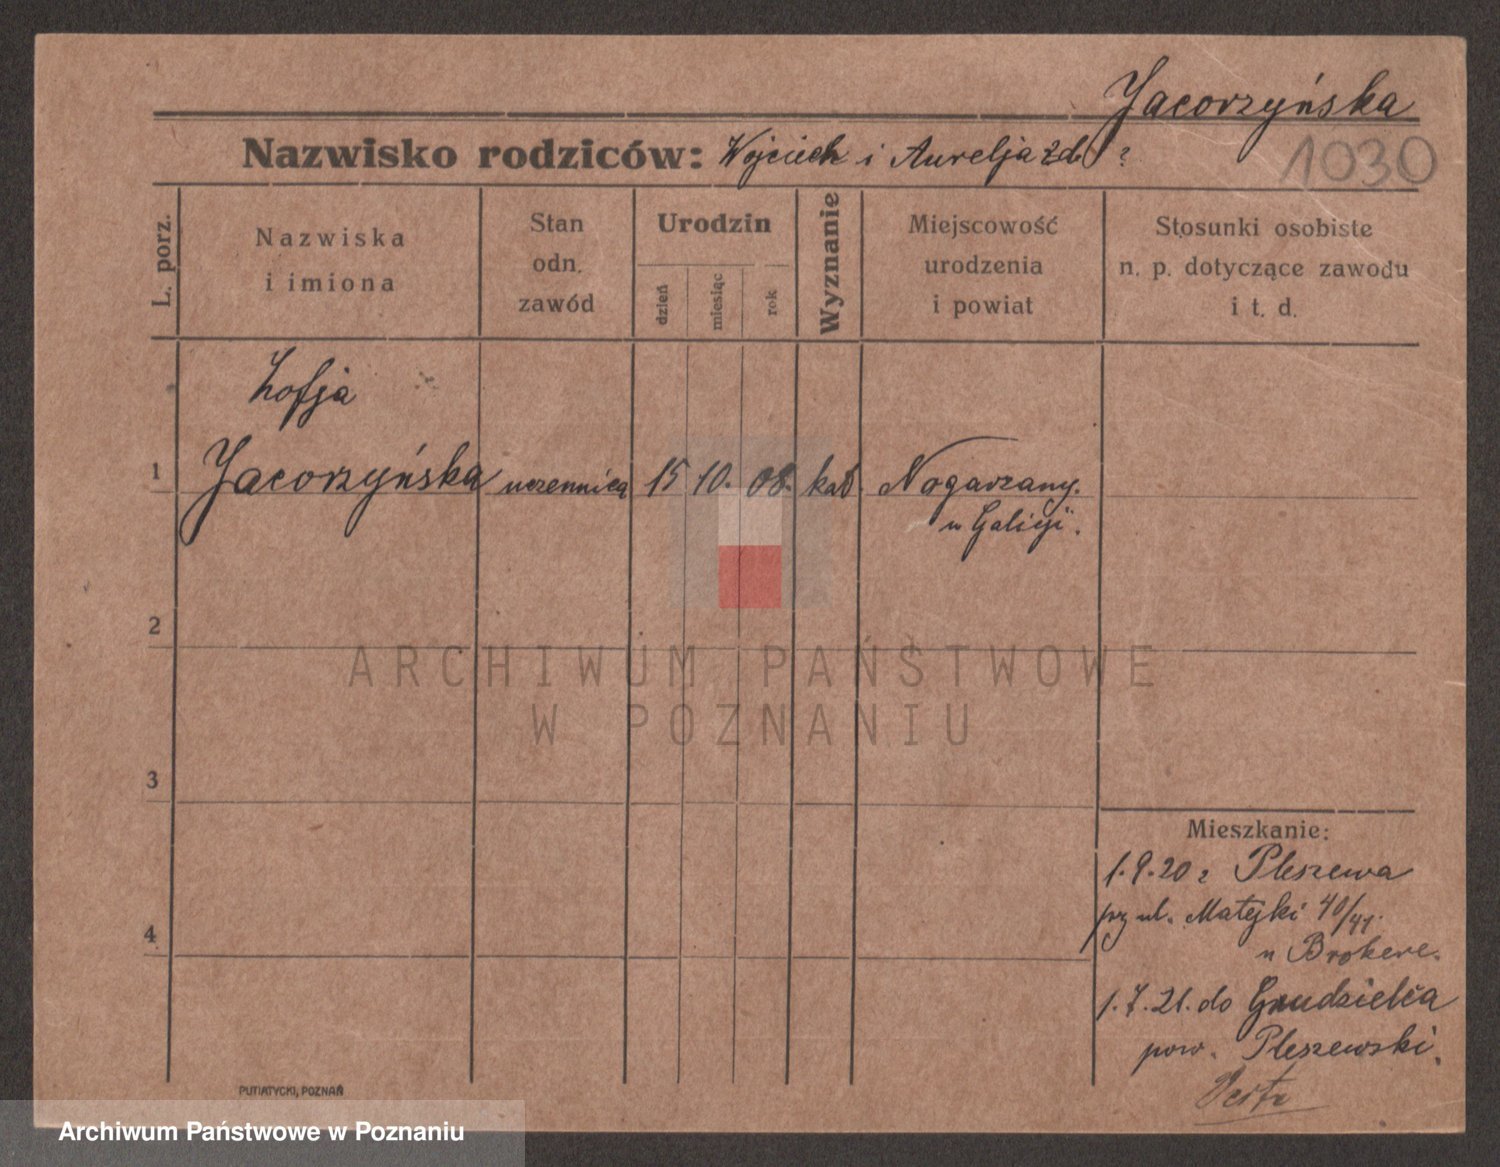 Jacorzyńska
Nazwisko rodziców: Wojciech i Aurelja zd. ?
1030
L. porz.
Nazwiska
i imiona
Stan
odn.
zawód
Urodzin
dzień
miesiąc
rok
Wyznanie
Miejscowość
urodzenia
i powiat
Stosunki osobiste
n. p. dotyczące zawodu
i t. d.
Zofja
1 Jacorzyńska uczennica 15 10. 08. kat. Nogarzany.
w Galicji.
2
ARCHIWUM PAŃSTWOWE
W POZNANIU
3
Mieszkanie:
1.9.20 z Pleszewa
przy ul. Matejki 40/41.
4
u Brokere.
1.7.21. do Grudzielca
pow. Pleszewski.
PUTIATYCKI, POZNAŃ
Archiwum Państwowe w Poznaniu